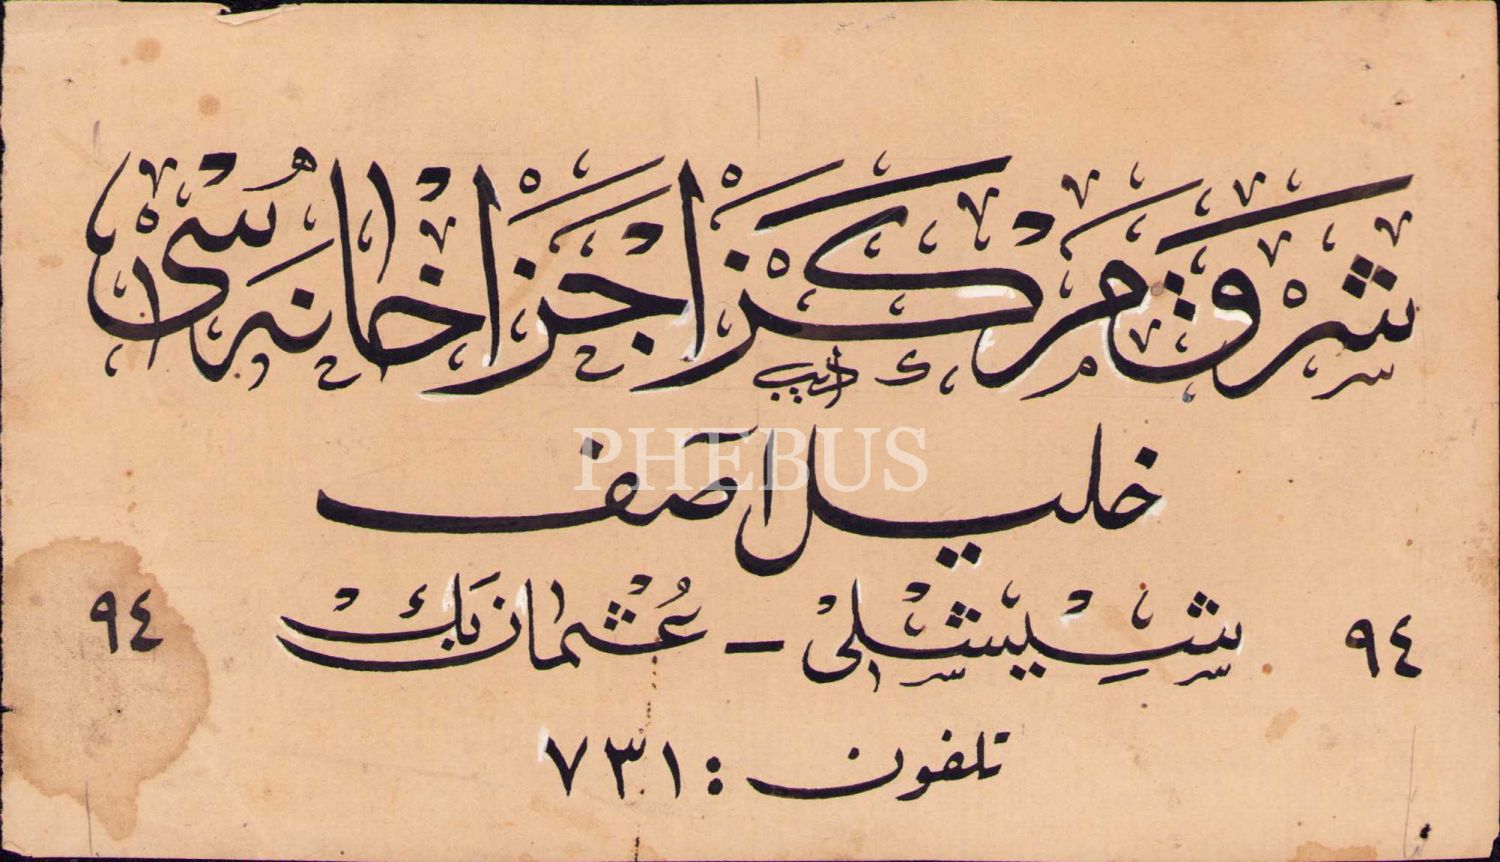 شرق مركز اجزاخانه سى
اديب
خليل آصف
PHEBUS
٩٤ شيشلى - عثمان بك ٩٤
تلفون : ٧٣١